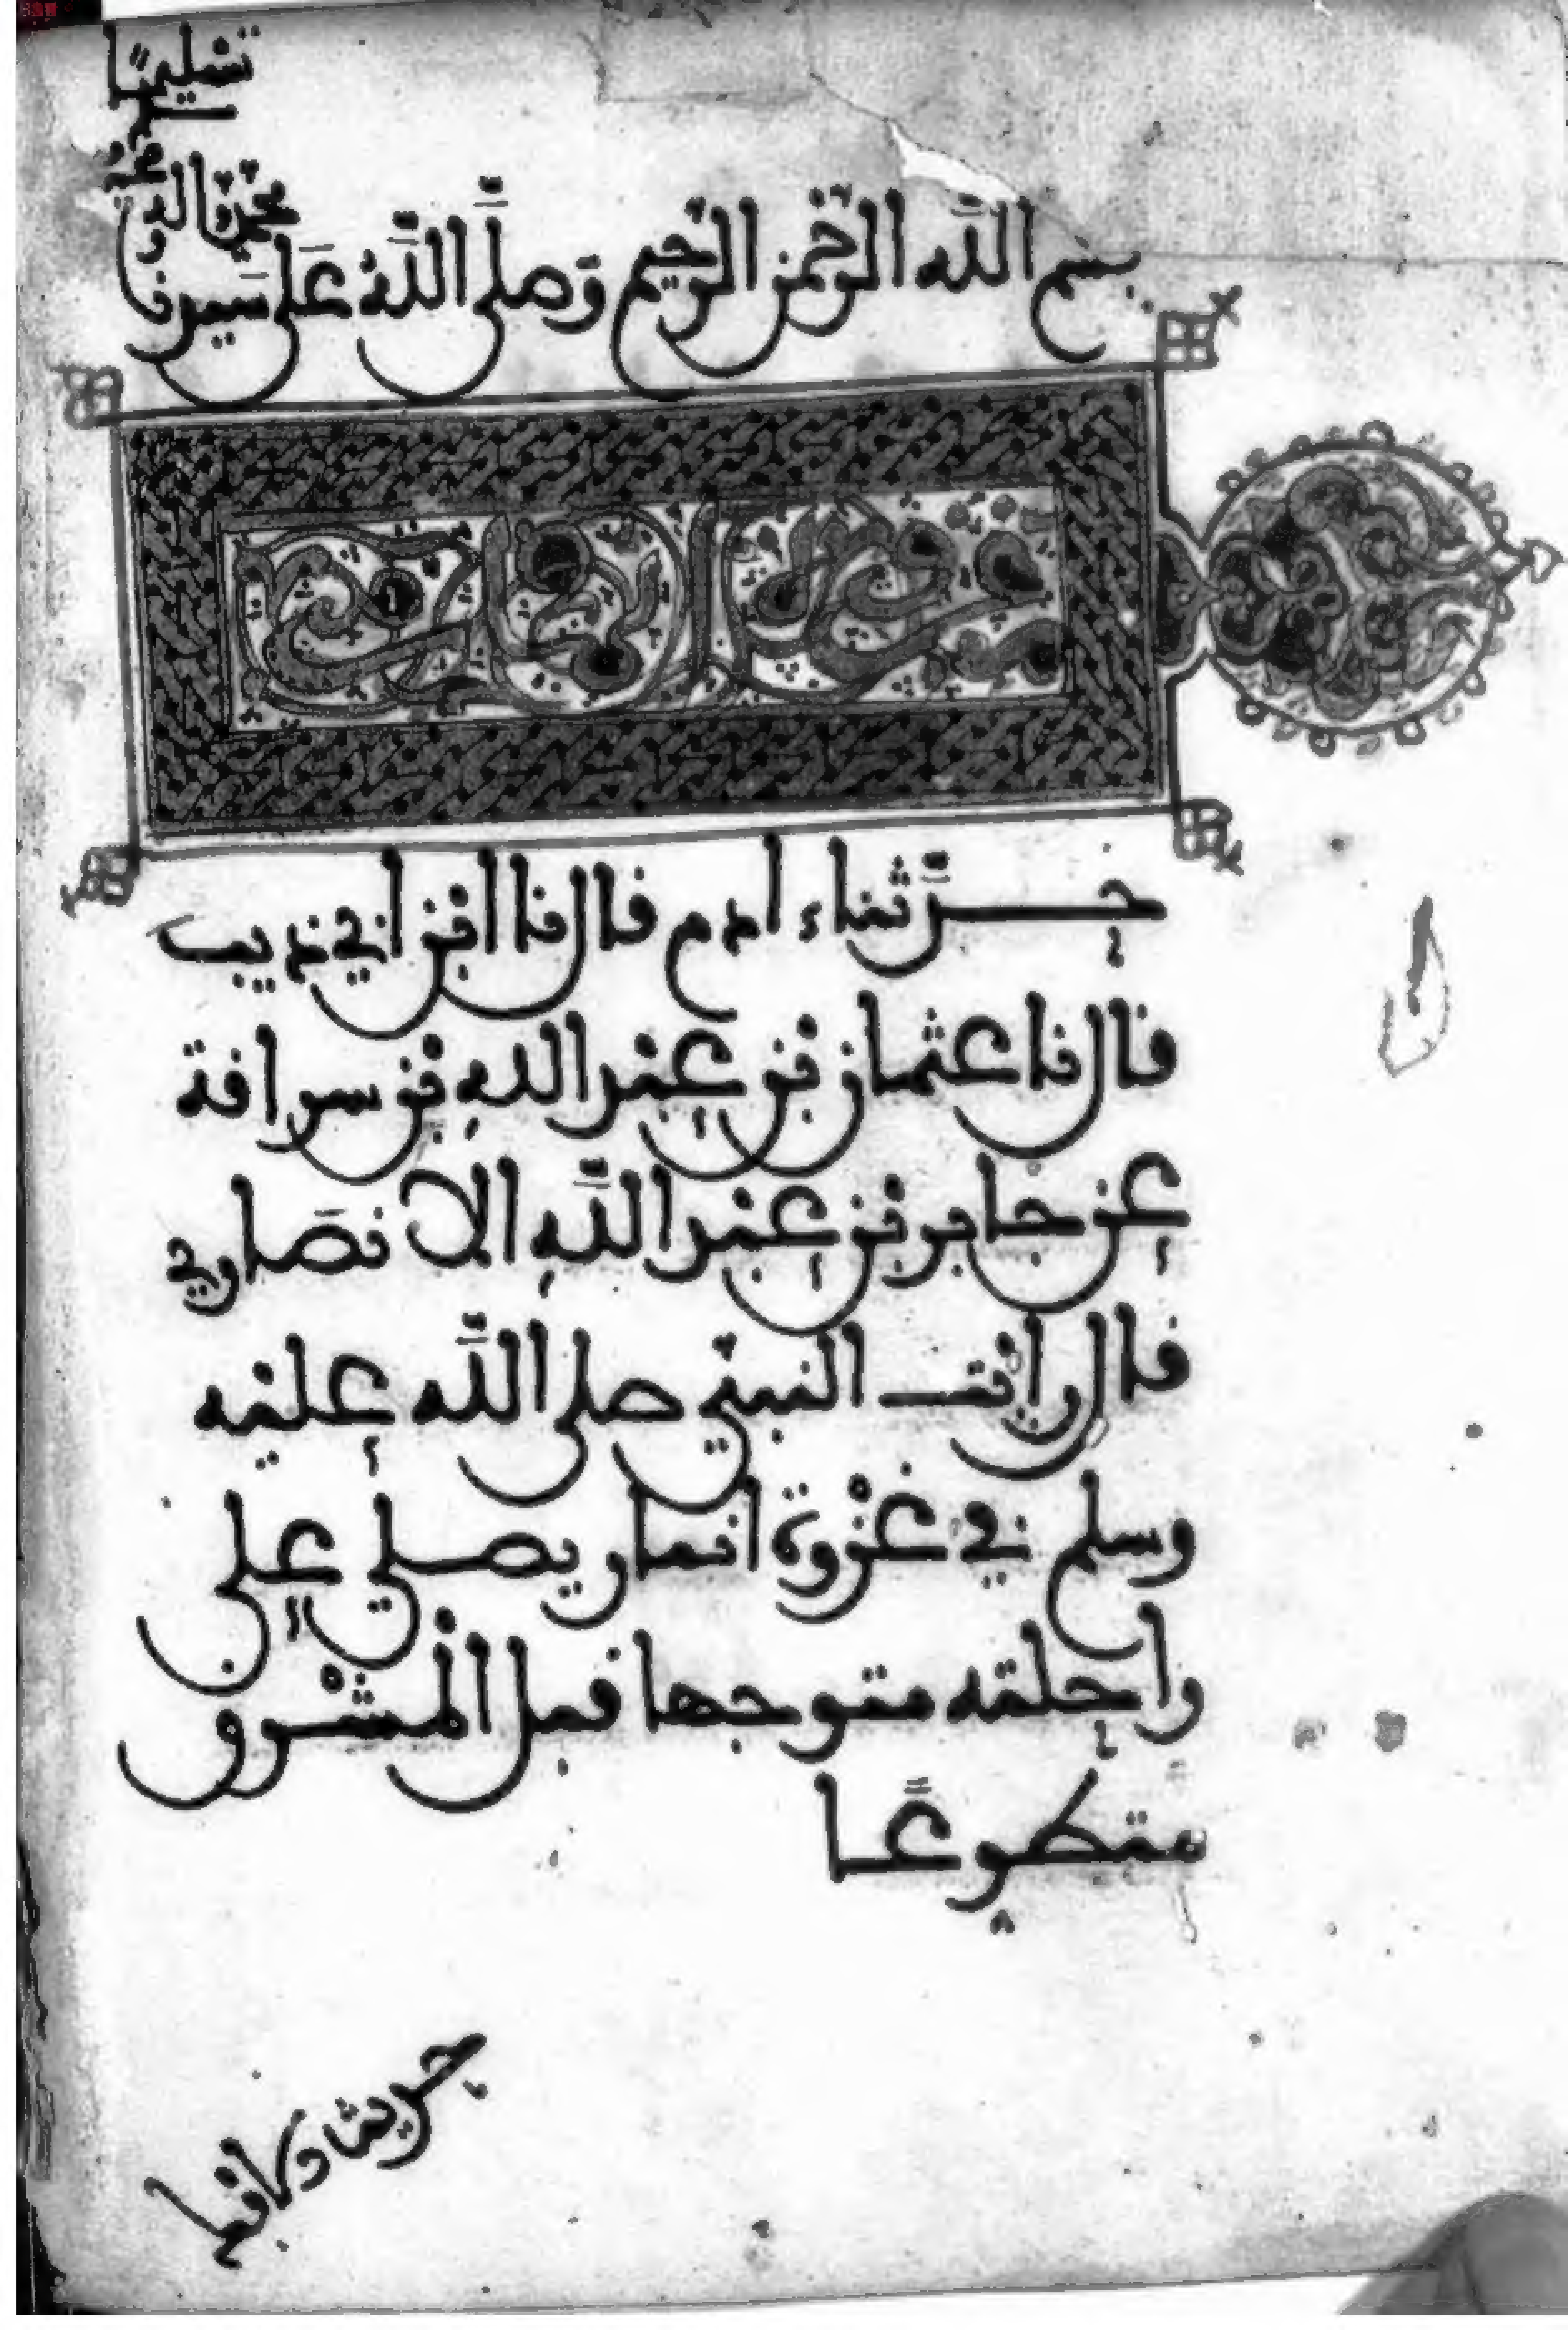 بسم الله الرحمن الرحيم وصلى الله على سيدنا
محمد وآله
تسليما
حدثناء ادم قال نا ابن ابي ذيب
قال نا عثمان بن عبد الله بن سراقة
عن جابر بن عبد الله الانصاري
قال رايت النبي صلى الله عليه
وسلم في غزوة انمار يصلي على
راحلته متوجها قبل المشرق
متطوعا